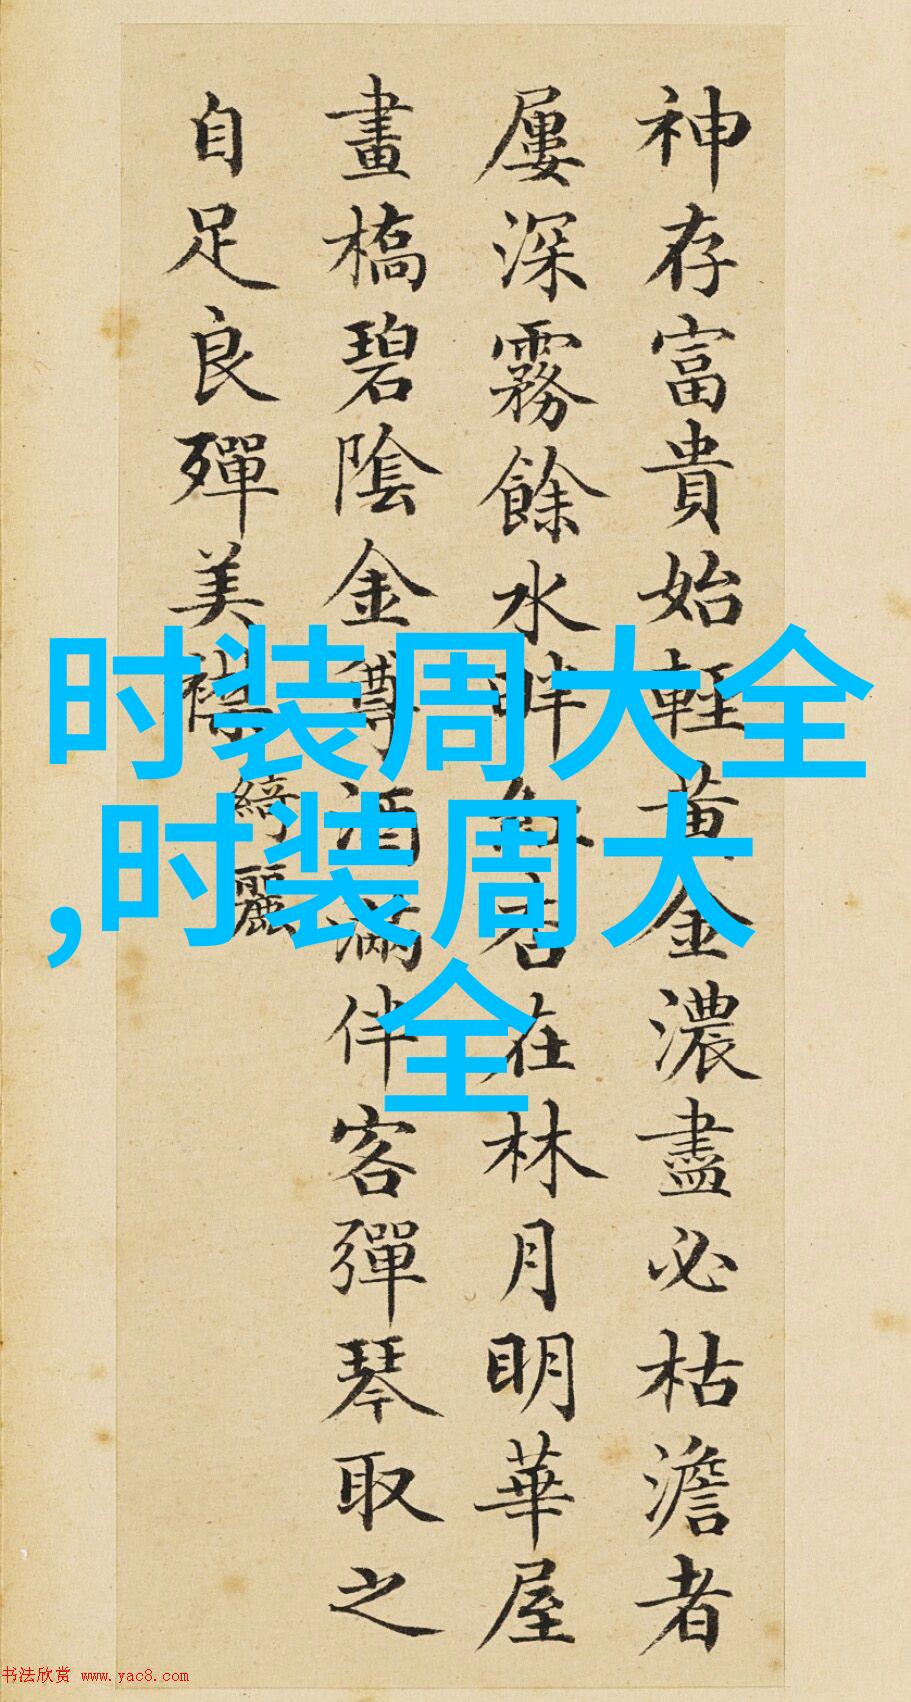 神存富貴始輕黃金濃盡必枯澹者
屢深霧餘水畔紅杏在林月明華屋
畫橋碧陰金樽酒滿伴客彈琴取之
自足良殫美襟
綺麗
时装周大全
,时装周大
全
书法欣赏 www.yac8.com